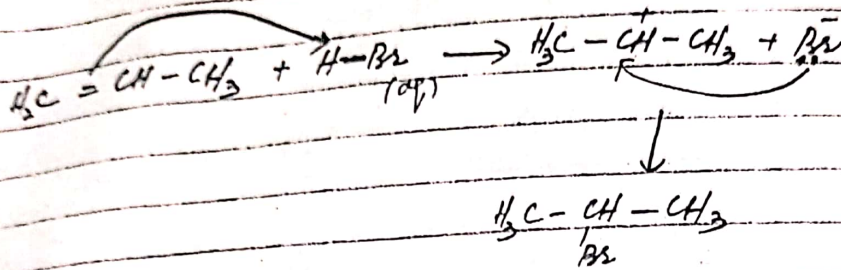 H₂C = CH – CH₃ + H–Br (aq) ⟶ H₃C – C⁺H – CH₃ + Br⁻
H₃C – CH – CH₃
Br